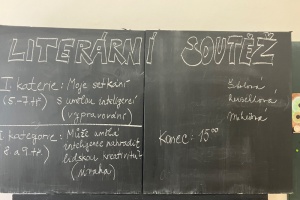 LITERÁRNÍ SOUTĚŽ
I katerie: Moje setkání
(5.-7.tř) s umělou inteligencí
(vypravování)
II kategorie: Může umělá
8. a 9.tř inteligence nahradit
lidskou kreativitu?
(úvaha)
Konec: 15⁰⁰